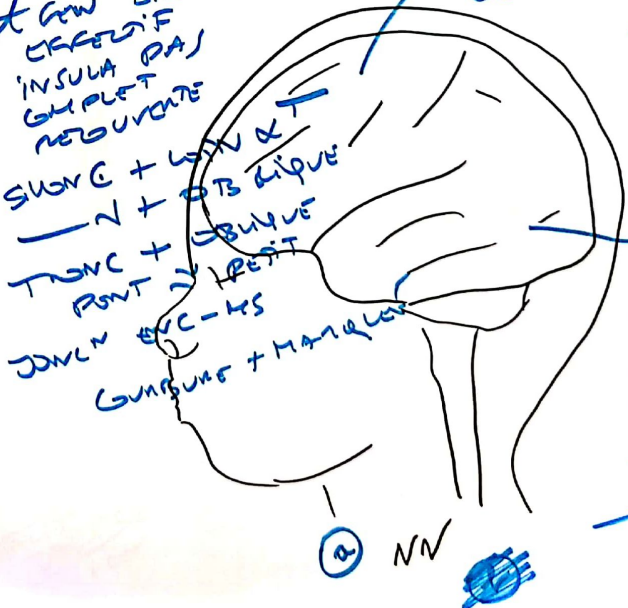 EFFECTIF
INSULA PAS
COMPLET
RECOUVERTE
SILLON C + LOIN α T
N + OBLIQUE
TRONC + OBLIQUE
PONT PETIT
JONC^N ENC-MS
COURBURE + MARQUEE
a NN